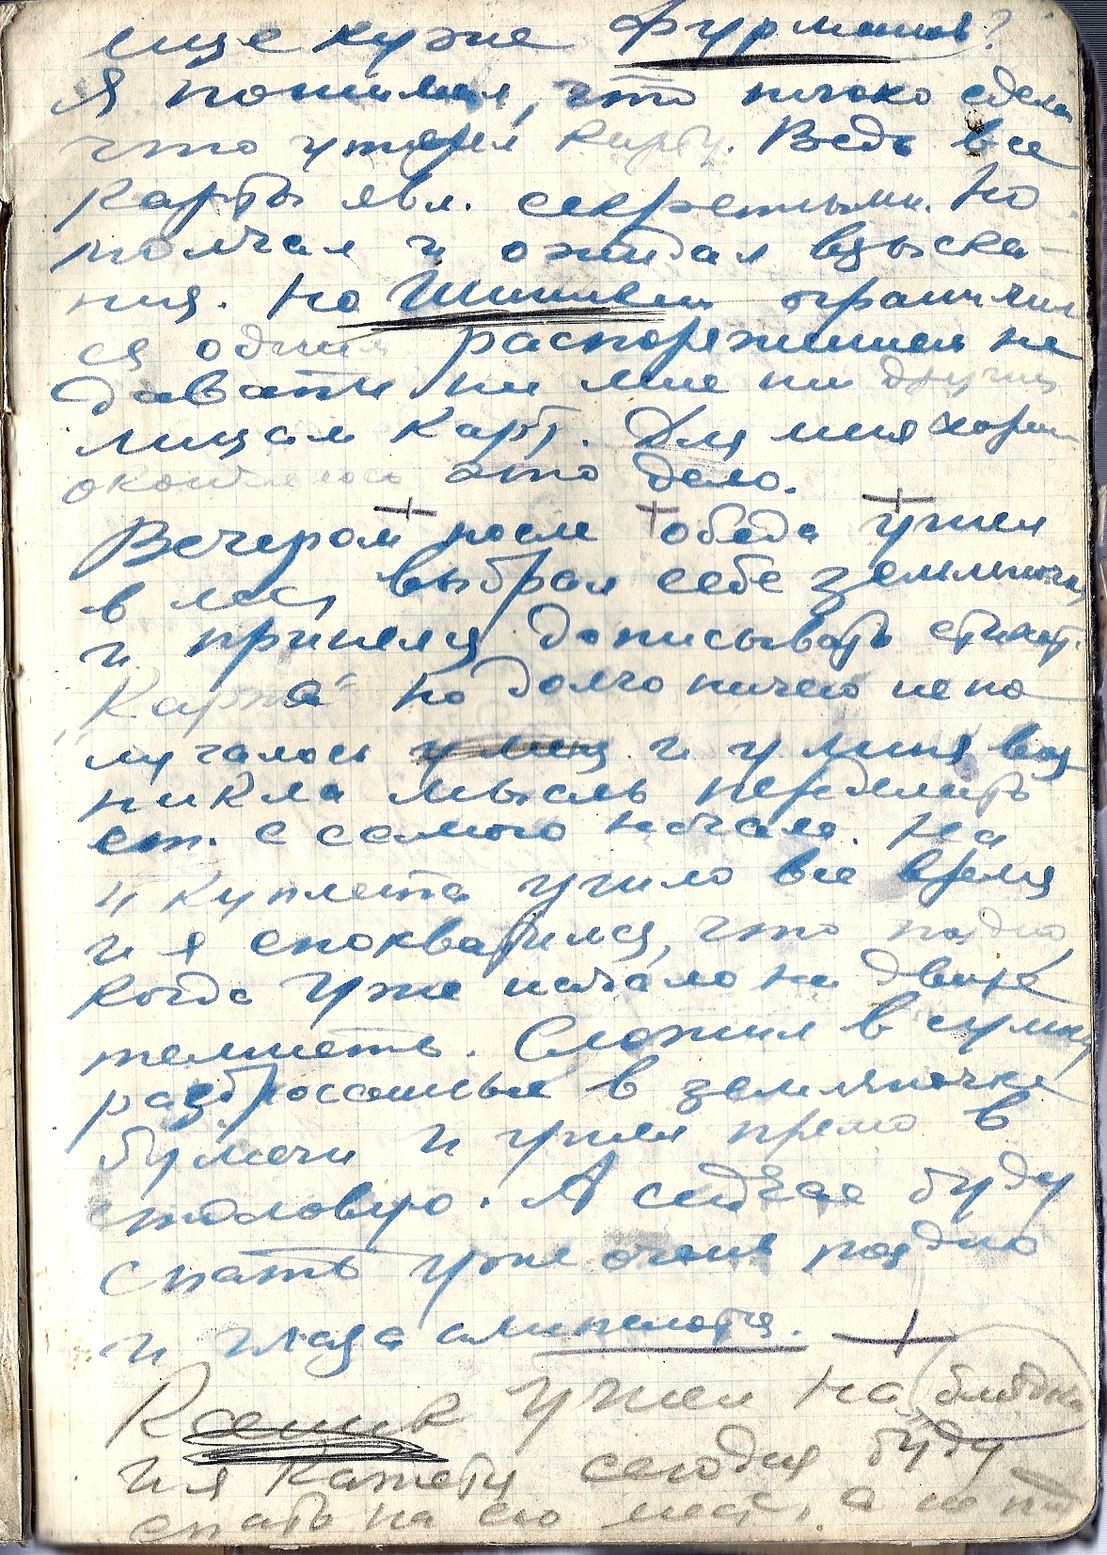 еще хуже Фурманов?
Я понимал, что плохо сделал
что утерял карту. Ведь все
карты явл. секретными. Но
молчал и ожидал взыска-
ния. Но ограничил
ся одним распоряжением не
давать ни мне ни другим
лицам карт. Для меня хорошо
окончилось это дело.
Вечером после обеда ушел
в лес, выбрал себе земляночку
и принялся дописывать стихот.
„Карта" но долго ничего не по
лучалось и у меня воз
никла мысль переделать
ст. с самого начала. На
4 куплета ушло все время
и я спохватился, что поздно,
когда уже начало на дворе
темнеть. Сложил в сумку
разбросанные в земляночке
бумаги и ушел прямо в
столовую. А сейчас буду
спать уже очень поздно
и глаза слипаются.
ушел на
и я кажется сегодня буду
спать на его месте, а не на